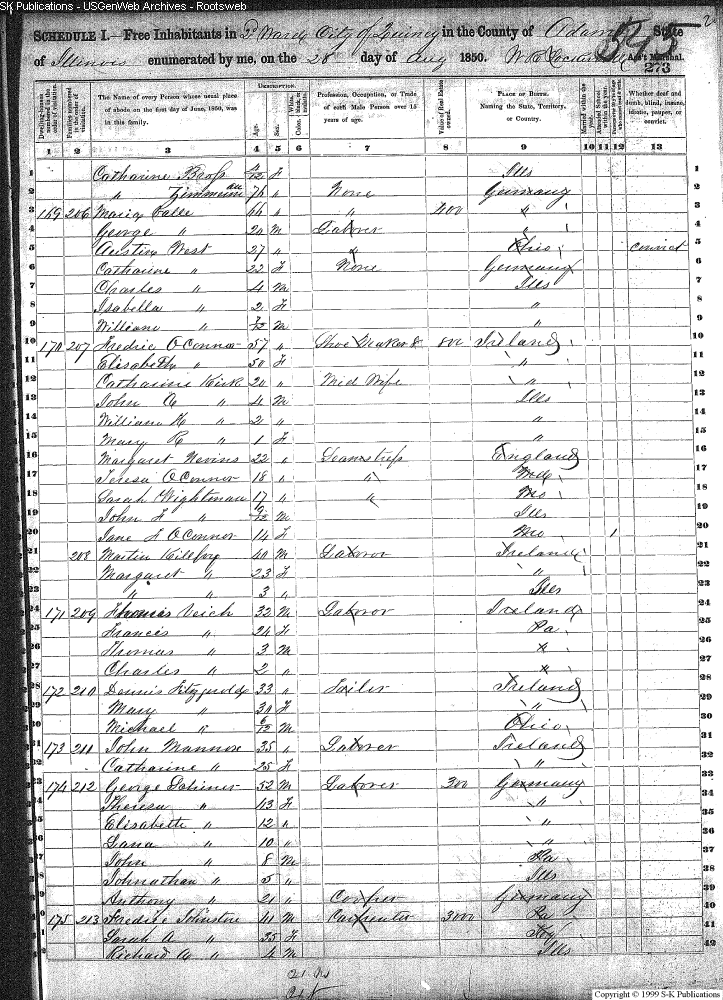 SK Publications - USGenWeb Archives - Rootsweb
SCHEDULE I.—Free Inhabitants in 2d Ward City of Quincy in the County of Adams State
of Illinois enumerated by me, on the 28 day of Aug 1850. Ass't Marshal.
545
273
Dwelling-houses numbered in the order of visitation.
Families numbered in the order of visitation.
The Name of every Person whose usual place of abode on the first day of June, 1850, was in this family.
DESCRIPTION.
Age.
Sex.
Color.
Profession, Occupation, or Trade of each Male Person over 15 years of age.
Value of Real Estate owned.
PLACE OF BIRTH. Naming the State, Territory, or Country.
Married within the year.
Attended School within the year.
Whether deaf and dumb, blind, insane, idiotic, pauper, or convict.
1 2 3 4 5 6 7 8 9 10 11 12 13
1 Catharine /12 F Ills 1
2 " 76 " None Germany 2
3 169 206 Maria 66 " " 400 " 3
4 George " 20 M Laborer " 4
5 Austin West 27 " " Ohio convict 5
6 Catharine " 22 F None Germany 6
7 Charles " 4 M Ills 7
8 Isabella " 2 F " 8
9 William " /12 M " 9
10 170 207 Fredric O'Connor 57 " Shoe Maker & 800 Ireland 10
11 Elisabeth " 50 F " 11
12 Catharine Kirk 20 " Mid Wife " 12
13 John " 4 M Ills 13
14 William H " 2 " " 14
15 Mary E " 1 F " 15
16 Margaret Nevins 22 " Seamstress England 16
17 Teresa O'Connor 18 " " 17
18 Sarah Wightman 17 " " Mo 18
19 John F " /12 M Ills 19
20 Jane F O'Connor 14 F Mo 1 20
21 208 Martin 40 M Laboror Ireland 21
22 Margaret " 23 F " 22
23 " " 3 " Ills 23
24 171 209 Thomas Veich 32 M Laboror Ireland 24
25 Francis " 24 F Pa 25
26 Thomas " 3 M " 26
27 Charles " 2 " " 27
28 172 210 Dennis Fitzgerald 33 " Tailor Ireland 28
29 Mary " 30 F " 29
30 Michael " 6/12 M Ohio 30
31 173 211 John Mannox 35 " Laborer Ireland 31
32 Catharine " 25 F " 32
33 174 212 George 52 M Laborer 300 Germany 33
34 Theresa " 43 F " 34
35 Elisabeth " 12 " " 35
36 Lana " 10 " " 36
37 John " 8 M Pa 37
38 Johnathan " 5 " Ills 38
39 Anthony " 21 " Cooper Germany 39
40 175 213 Fredric Johnston 41 M Carpenter 3000 Pa 40
41 Sarah A " 35 F Ky 41
42 Richard " 4 M Ills 42
Copyright © 1999 S-K Publications